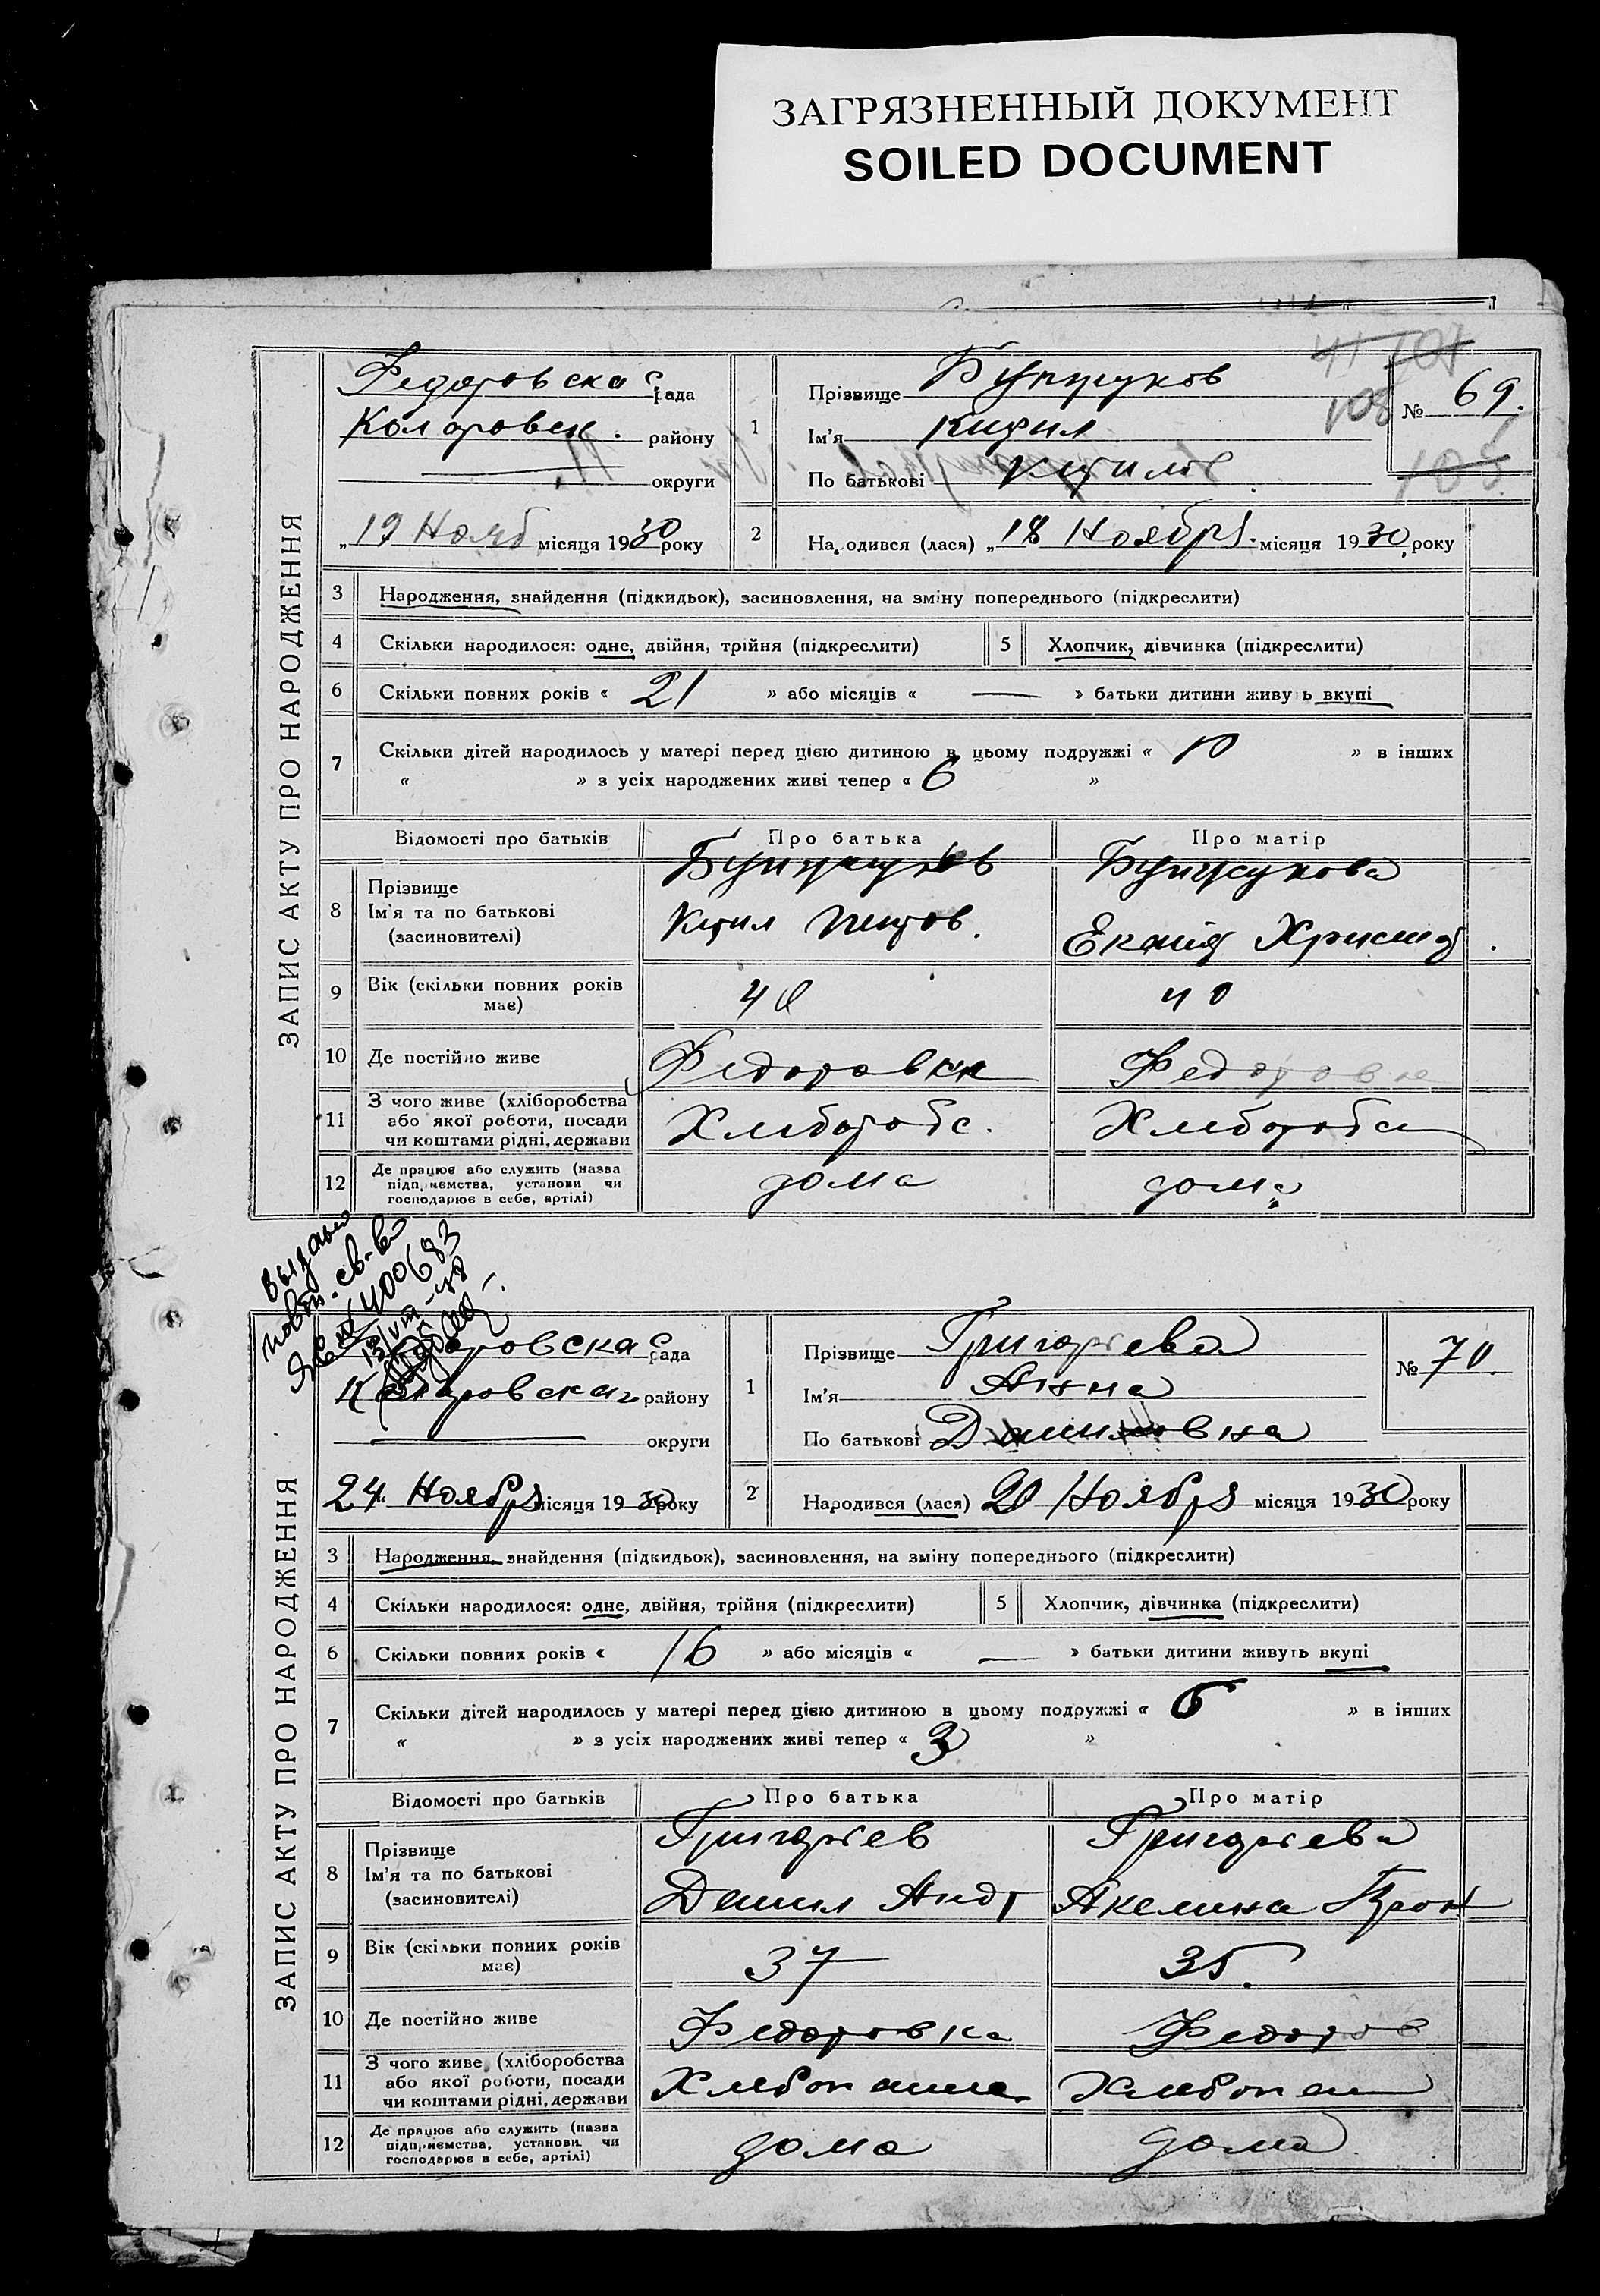 ЗАГРЯЗНЕННЫЙ ДОКУМЕНТ
SOILED DOCUMENT
ЗАПИС АКТУ ПРО НАРОДЖЕННЯ
Федоровская рада
Коларовск. району
округи
„19 Нояб місяця 1930 року
1
Прізвище
Ім'я Кирил
По батькові Кирилов
108
№ 69.
2
Народився (лася) „18 Ноября місяця 1930 року
3 Народження, знайдення (підкидьок), засиновлення, на зміну попереднього (підкреслити)
4 Скільки народилося: одне, двійня, трійня (підкреслити)
5 Хлопчик, дівчинка (підкреслити)
6 Скільки повних років « 21 » або місяців « — » батьки дитини живуть вкупі
7 Скільки дітей народилось у матері перед цією дитиною в цьому подружжі « 10 » в інших
« » з усіх народжених живі тепер « 6 »
Відомості про батьків Про батька Про матір
8 Прізвище
Ім'я та по батькові
(засиновителі)
Кирил Петров.
9 Вік (скільки повних років має) 40 40
10 Де постійно живе Федоровка Федоровка
11 З чого живе (хліборобства
або якої роботи, посади
чи коштами рідні, держави
Хлебороб
Хлебороб
12 Де працює або служить (назва
підприємства, установи чи
господарює в себе, артілі)
дома дома
выдано
повт. св-во
400683
ЗАПИС АКТУ ПРО НАРОДЖЕННЯ
рада
району
округи
24. Ноября місяця 1930 року
1
Прізвище Григорьева
Ім'я Анна
По батькові Даниловна
№ 70.
2
Народився (лася) 20 Ноября місяця 1930 року
3 Народження, знайдення (підкидьок), засиновлення, на зміну попереднього (підкреслити)
4 Скільки народилося: одне, двійня, трійня (підкреслити)
5 Хлопчик, дівчинка (підкреслити)
6 Скільки повних років « 16 » або місяців « — » батьки дитини живуть вкупі
7 Скільки дітей народилось у матері перед цією дитиною в цьому подружжі « » в інших
« » з усіх народжених живі тепер « 3 »
Відомості про батьків Про батька Про матір
8 Прізвище
Ім'я та по батькові
(засиновителі)
Григорьев
Данил Андр
Григорьева
Акелина
9 Вік (скільки повних років має) 37 35.
10 Де постійно живе Федоровка Федоров
11 З чого живе (хліборобства
або якої роботи, посади
чи коштами рідні, держави
Хлебопашец
Хлебопаш
12 Де працює або служить (назва
підприємства, установи чи
господарює в себе, артілі)
дома дома